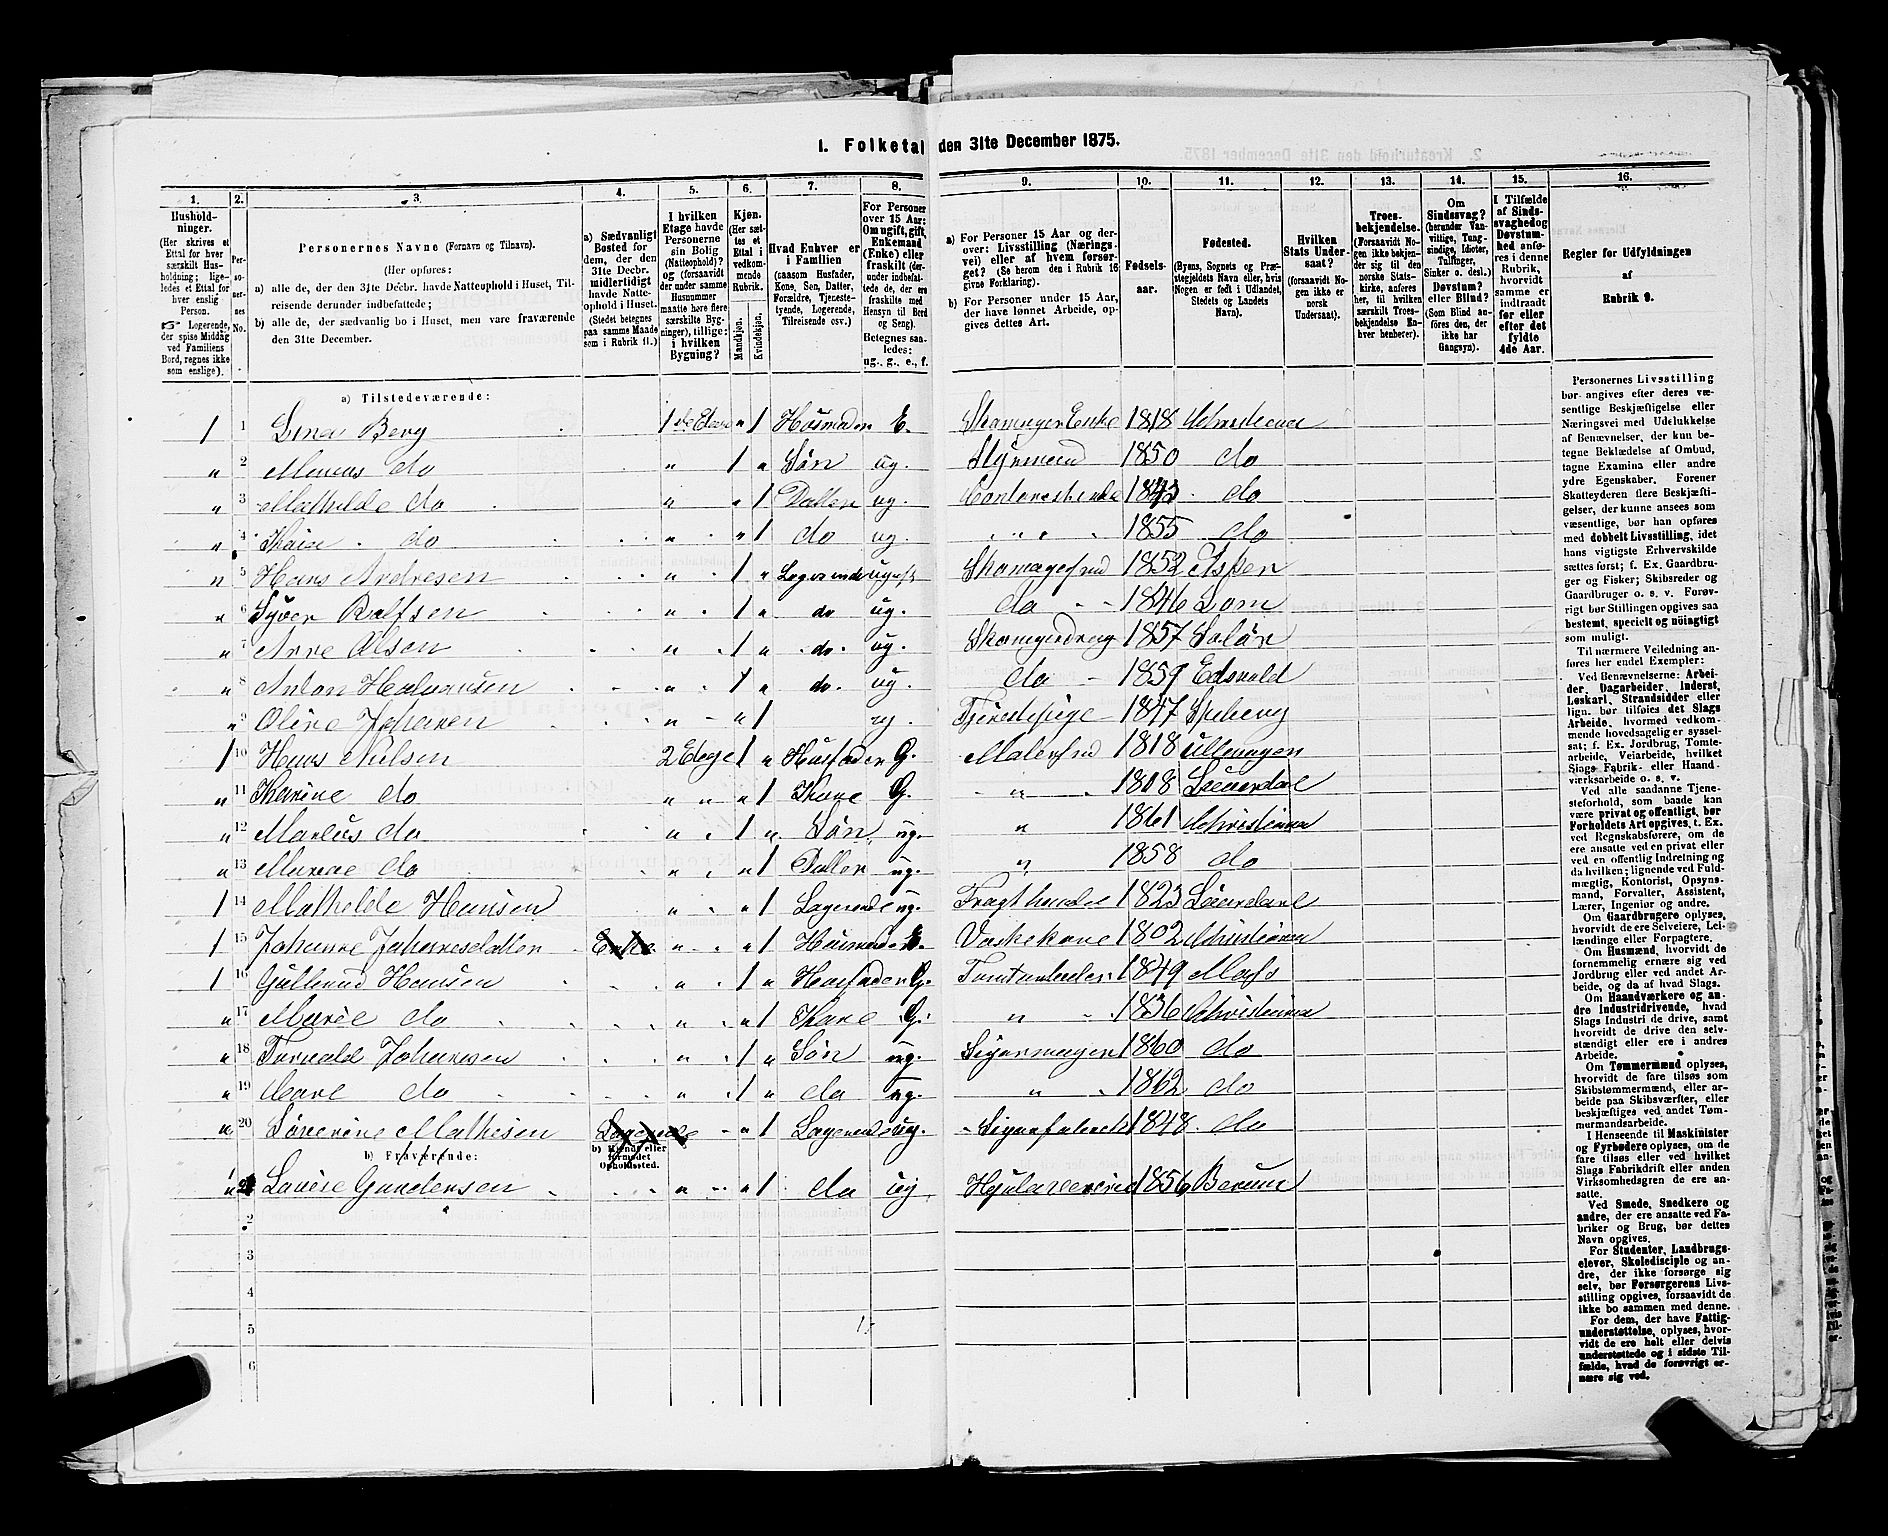 1. Folketal den 31te December 1875.
1. 2. 3. 4. 5. 6. 7. 8. 9. 10. 11. 12. 13. 14. 15. 16.
Hushold-
ninger.
(Her skrives et
Ettal for hver
særskilt Hus-
holdning; lige-
ledes et Ettal for
hver enslig
Person.
☞ Logerende,
der spise Middag
ved Familiens
Bord, regnes ikke
som enslige).
Per-
so-
ner-
nes
No.
Personernes Navne (Fornavn og Tilnavn).
(Her opføres:
a) alle de, der den 31te Decbr. havde Natteophold i Huset, Til-
reisende derunder indbefattede;
b) alle de, der sædvanlig bo i Huset, men vare fraværende
den 31te December.
a) Sædvanligt
Bosted for
dem, der den
31te Decbr.
midlertidigt
havde Natte-
ophold i Huset.
(Stedet betegnes
paa samme Maade
som i Rubrik 11.)
I hvilken
Etage havde
Personerne
sin Bolig
(Natteophold)?
og (forsaavidt
der under samme
Husnummer
maatte høre flere
særskilte Byg-
ninger), tillige:
i hvilken
Bygning?
Kjøn.
(Her sæt-
tes et
Ettal i
vedkom-
mende
Rubrik.
Mandkjøn.
Kvindekjøn.
Hvad Enhver er
i Familien
(saasom Husfader,
Kone, Søn, Datter,
Forældre, Tjeneste-
tyende, Logerende,
Tilreisende osv.)
For Personer
over 15 Aar:
Om ugift, gift,
Enkemand
(Enke) eller
fraskilt (der-
under indbefat-
tede de, der ere
fraskilte med
Hensyn til Bord
og Seng).
Betegnes saa-
ledes:
ug., g., e., f.
a) For Personer 15 Aar og der-
over: Livsstilling (Nærings-
vei) eller af hvem forsør-
get? (Se herom den i Rubrik 16
givne Forklaring).
b) For Personer under 15 Aar,
der have lønnet Arbeide, op-
gives dettes Art.
Fødsels-
aar.
Fødested.
(Byens, Sognets og Præ-
stegjeldets Navn eller, hvis
Nogen er født i Udlandet,
Stedets og Landets
Navn).
Hvilken
Stats Under-
saat?
(forsaavidt No-
gen ikke er
norsk
Undersaat).
Troes-
bekjendelse.
(Forsaavidt No-
gen ikke bekjen-
der sig til den
norske Stats-
kirke, anføres
her, til hvilken
særskilt Troes-
bekjendelse En-
hver henhører).
Om
Sindssvag?
(herunder Van-
vittige, Tung-
sindige, Idioter,
Tullinger,
Sinker o. desl.)
Døvstum?
eller Blind?
(Som Blind an-
føres den, der
ikke har
Gangsyn).
I Tilfælde
af Sinds-
svaghed og
Døvstum-
hed anfø-
res i denne
Rubrik,
hvorvidt
samme er
indtraadt
før eller
efter det
fyldte
4de Aar.
Regler for Udfyldningen
af
Rubrik 9.
a) Tilstedeværende:
1 1 Lina Berg 1ste Etage " 1 Husmoder E. Skomager Enke 1818 Christiania
" 2 Marius do " 1 " Søn ug. Styrmand 1850 do
" 3 Mathilde do " " 1 Datter ug. 1843 do
" 4 do " " 1 do ug. " " 1855 do
" 5 Hans Andresen " 1 " Logerende Skomagersvend 1852 Asker
" 6 Syver Rolfsen " 1 " do ug. do 1846 Lom
" 7 Arne Olsen " 1 " do. ug. 1857 Solør
" 8 Anton Halvorsen " 1 " do. ug. do 1859 Edsvold
" 9 Oline Johansen " " 1 ug. Tjenestepige 1847 Speberg
1 10 Hans Nielsen 2 Etage 1 " Husfader G. Malersvend 1818 Ullensagen
" 11 Karine do " " 1 Kone G. " 1818 Leuerdal
" 12 Marius do " 1 " Søn ug. " 1861 Christiania
" 13 Marie do " " 1 Datter ug. " 1858 do
1 14 Mathilde Hansen " " 1 Logerende ug. Frugthandel 1823 Leuerdal
1 15 Johanne Johannesdatter Enke " " 1 Husmoder E. Vaskekone 1802 Christiania
1 16 Gulbrand Hansen " 1 " Husfader G. Tomtearbeider 1849 Moss
" 17 Marie do " " 1 Kone G. " 1836 Christiania
" 18 Torvald Johansen " 1 " Søn ug. Sigarmager 1860 do
" 19 Carl do " 1 " do ug. " 1862 do
" 20 Severine Mathisen Logerende " 1 Logerende ug. Sigarfabrik 1848 do
b) Fraværende:
b) Kjendt eller
formodet
Opholdssted.
" Lovise Gundersen " " 1 do ug 1856 Berum
2
3
4
5
6
Personernes Livsstilling
bør angives efter deres væ-
sentlige Beskjæftigelse eller
Næringsvei med Udelukkelse
af Benævnelser, der kun be-
tegne Beklædelse af Ombud,
tagne Examina eller andre
ydre Egenskaber. Forener
Skatteyderen flere Beskjæfti-
gelser, der kunne ansees som
væsentlige, bør han opføres
med dobbelt Livsstilling, idet
hans vigtigste Erhvervskilde
sættes først; f. Ex. Gaardbru-
ger og Fisker; Skibsreder og
Gaardbruger o. s. v. Forøv-
rigt bør Stillingen opgives saa
bestemt, specielt og nøiagtigt
som muligt.
Til nærmere Veiledning an-
føres her endel Exempler:
Ved Benævnelserne: Arbei-
der, Dagarbeider, Inderst,
Løskarl, Strandsidder eller
lign. bør tilføies det Slags
Arbeide, hvormed vedkom-
mende hovedsagelig er syssel-
sat; f. Ex. Jordbrug, Tomte-
arbeide, Veiarbeide, hvilket
Slags Fabrik- eller Haand-
værksarbeide o. s. v.
Ved alle saadanne Tjene-
steforhold, som baade kan
være privat og offentlig, bør
Forholdets Art opgives, t. Ex.
ved Regnskabsførere, om de
ere ansatte ved en privat eller
ved en offentlig Indretning og
da hvilken; lignende ved Fuld-
mægtig, Kontorist, Opsyns-
mand, Forvalter, Assistent,
Lærer, Ingeniør og andre.
Om Gaardbrugere oplyses,
hvorvidt de ere Selveiere, Lei-
lændinge eller Forpagtere.
Om Husmænd, hvorvidt de
fornemmelig ernære sig ved
Jordbrug eller ved andet Ar-
beide, og da af hvad Slags.
Om Haandværkere og an-
dre Industridrivende, hvad
Slags Industri de drive, samt
hvorvidt de drive den selv-
stændigt eller ere i andres
Arbeide.
Om Tømmermænd oplyses,
hvorvidt de fare tilsøs som
Skibstømmermænd, eller ar-
beide paa Skibsværfter, eller
beskjæftiges ved andet Tøm-
mermandsarbeide.
I Henseende til Maskinister
og Fyrbødere oplyses, om de
fare tilsøs eller ved hvilket
Slags Fabrikdrift eller anden
Virksomhedsgren de ere an-
satte.
Ved Smede, Snedkere og
andre, der ere ansatte ved Fa-
briker og Brug, bør dettes
Navn opgives.
For Studenter, Landbrugs-
elever, Skoledisciple og an-
dre, der ikke forsørge sig
selv, bør Forsørgerens Livs-
stilling opgives, forsaavidt de
ikke bo sammen med denne.
For dem, der have Fattig-
understøttelse, oplyses, hvor-
vidt de ere helt eller delvis
understøttede og i sidste Til-
fælde, hvad de forøvrigt er-
nære sig ved.